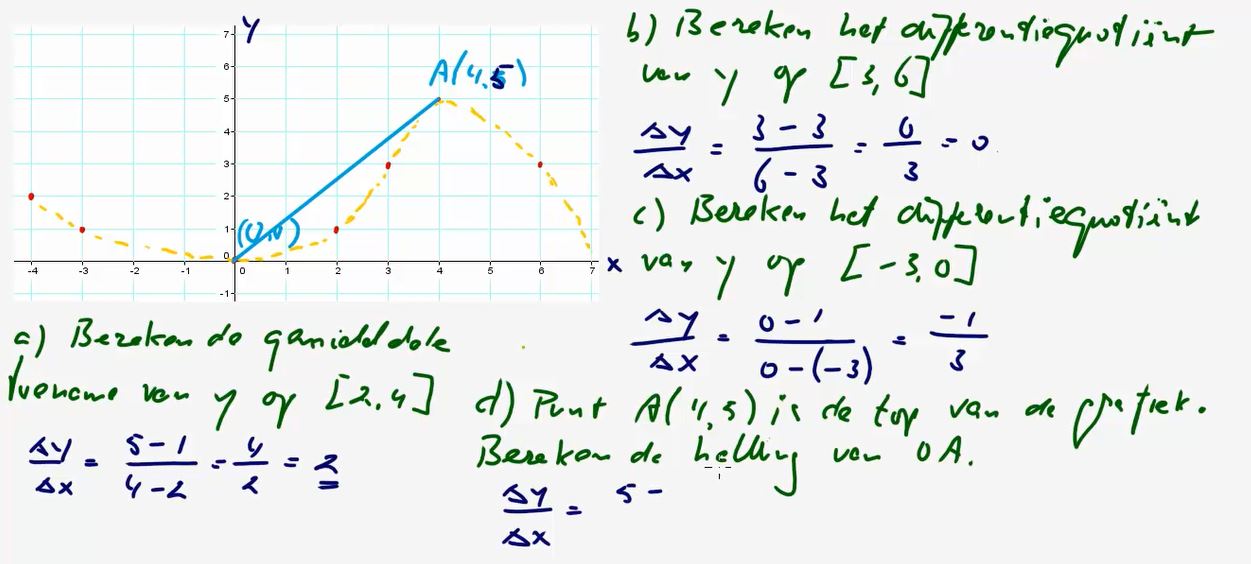 Y
7
6
5
4
3
2
1
0
-1
-4 -3 -2 -1 0 1 2 3 4 5 6 7 x
A(4,5)
(0,0)
a) Bereken de gemiddelde
toename van y op [2,4]
Δy/Δx = 5-1/4-2 = 4/2 = 2
b) Bereken het differentiequotiënt
van y op [3,6]
Δy/Δx = 3-3/6-3 = 0/3 = 0
c) Bereken het differentiequotiënt
van y op [-3,0]
Δy/Δx = 0-1/0-(-3) = -1/3
d) Punt A(4,5) is de top van de grafiek.
Bereken de helling van OA.
Δy/Δx = 5-